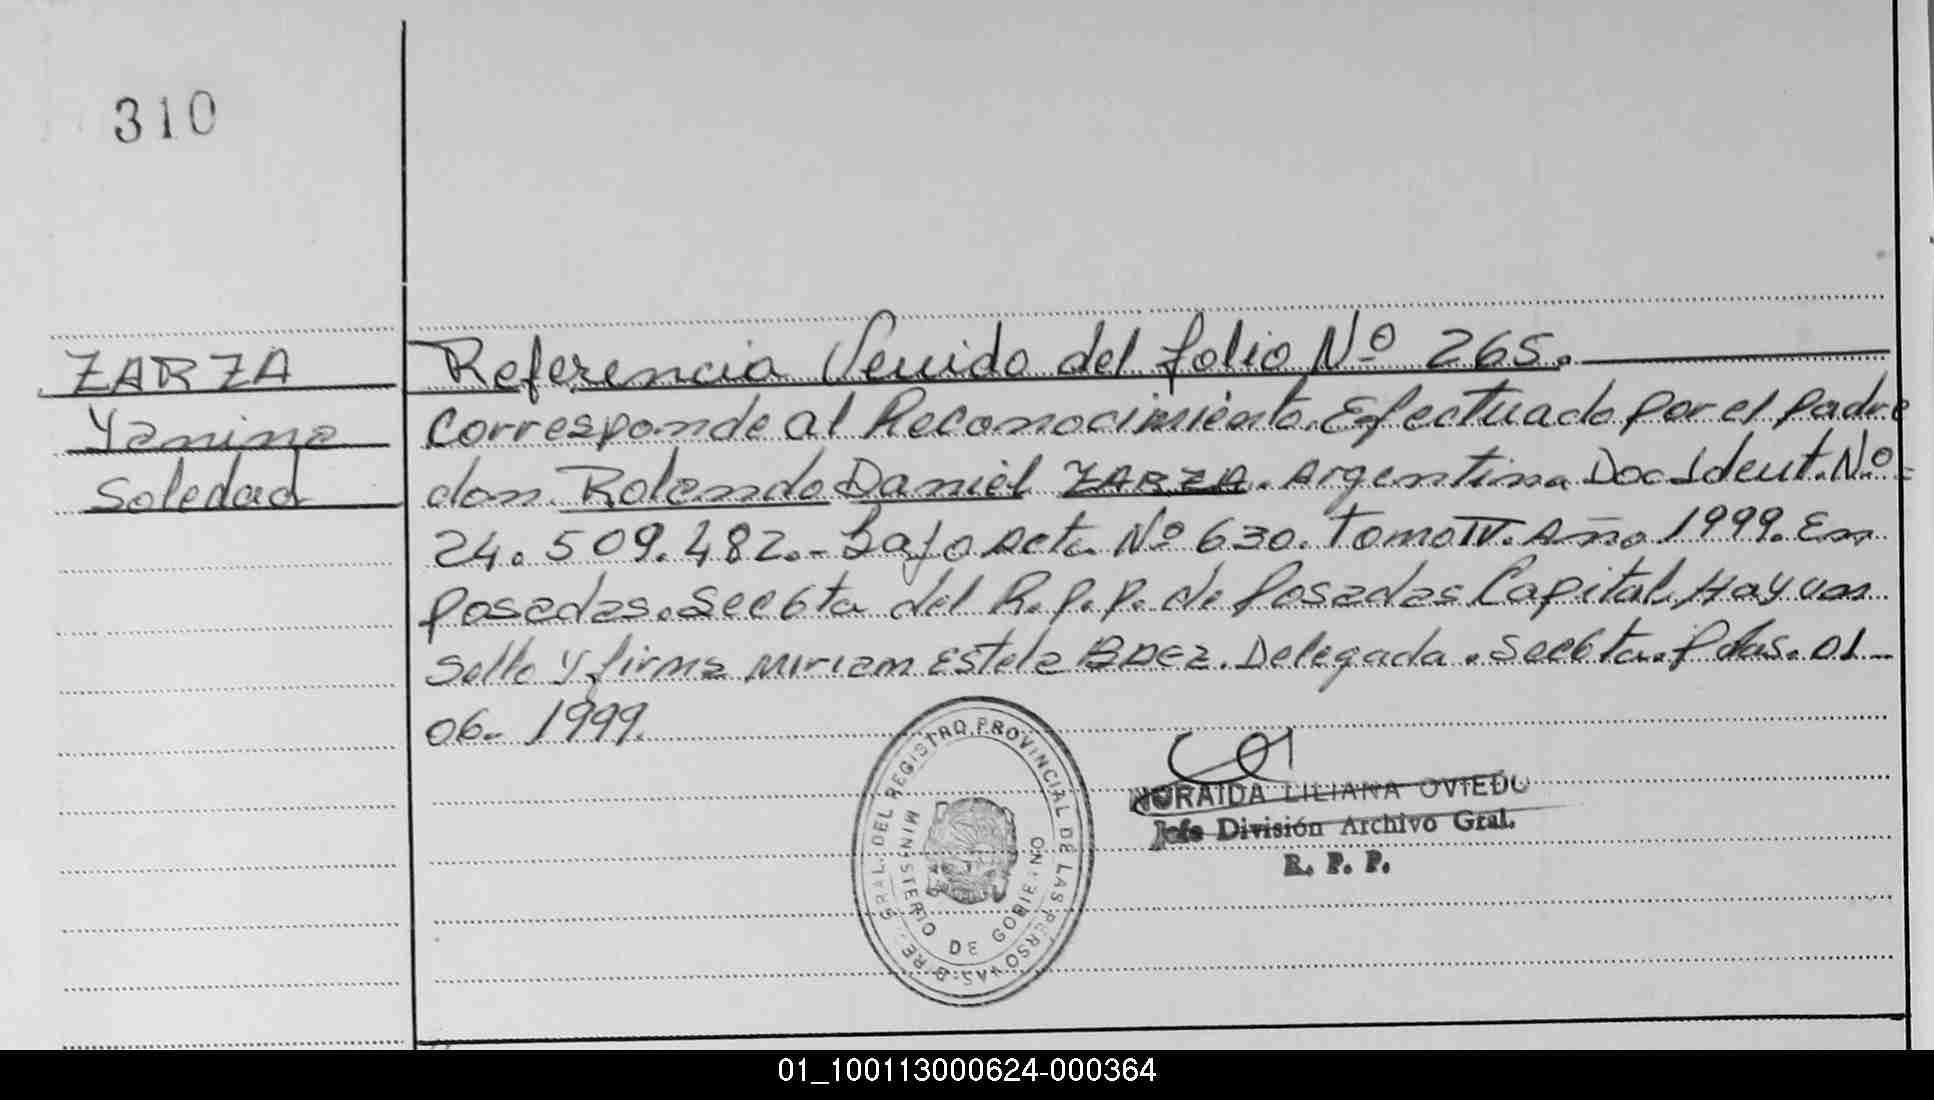 310
ZARZA
Yanina
Soledad
Referencia Venido del folio Nº 265.
corresponde al Reconocimiento. Efectuado por el padre
don. Rolando Daniel ZARZA. Argentina Doc Ident. Nº
24.509.482.- Bajo Acta Nº 630. Tomo IV. Año 1999. En
Posadas. Secc 6ta del R.P.P. de Posadas Capital. Hay un
Sello y firma Miriam Estela BAEZ. Delegada. Secc 6ta. Pdas. 01-
06- 1999.
GRAL. DEL REGISTRO PROVINCIAL DE LAS PERSONAS
MINISTERIO DE GOBIERNO
NORAIDA LILIANA OVIEDO
Jefe División Archivo Gral.
R. P. P.
01_100113000624-000364